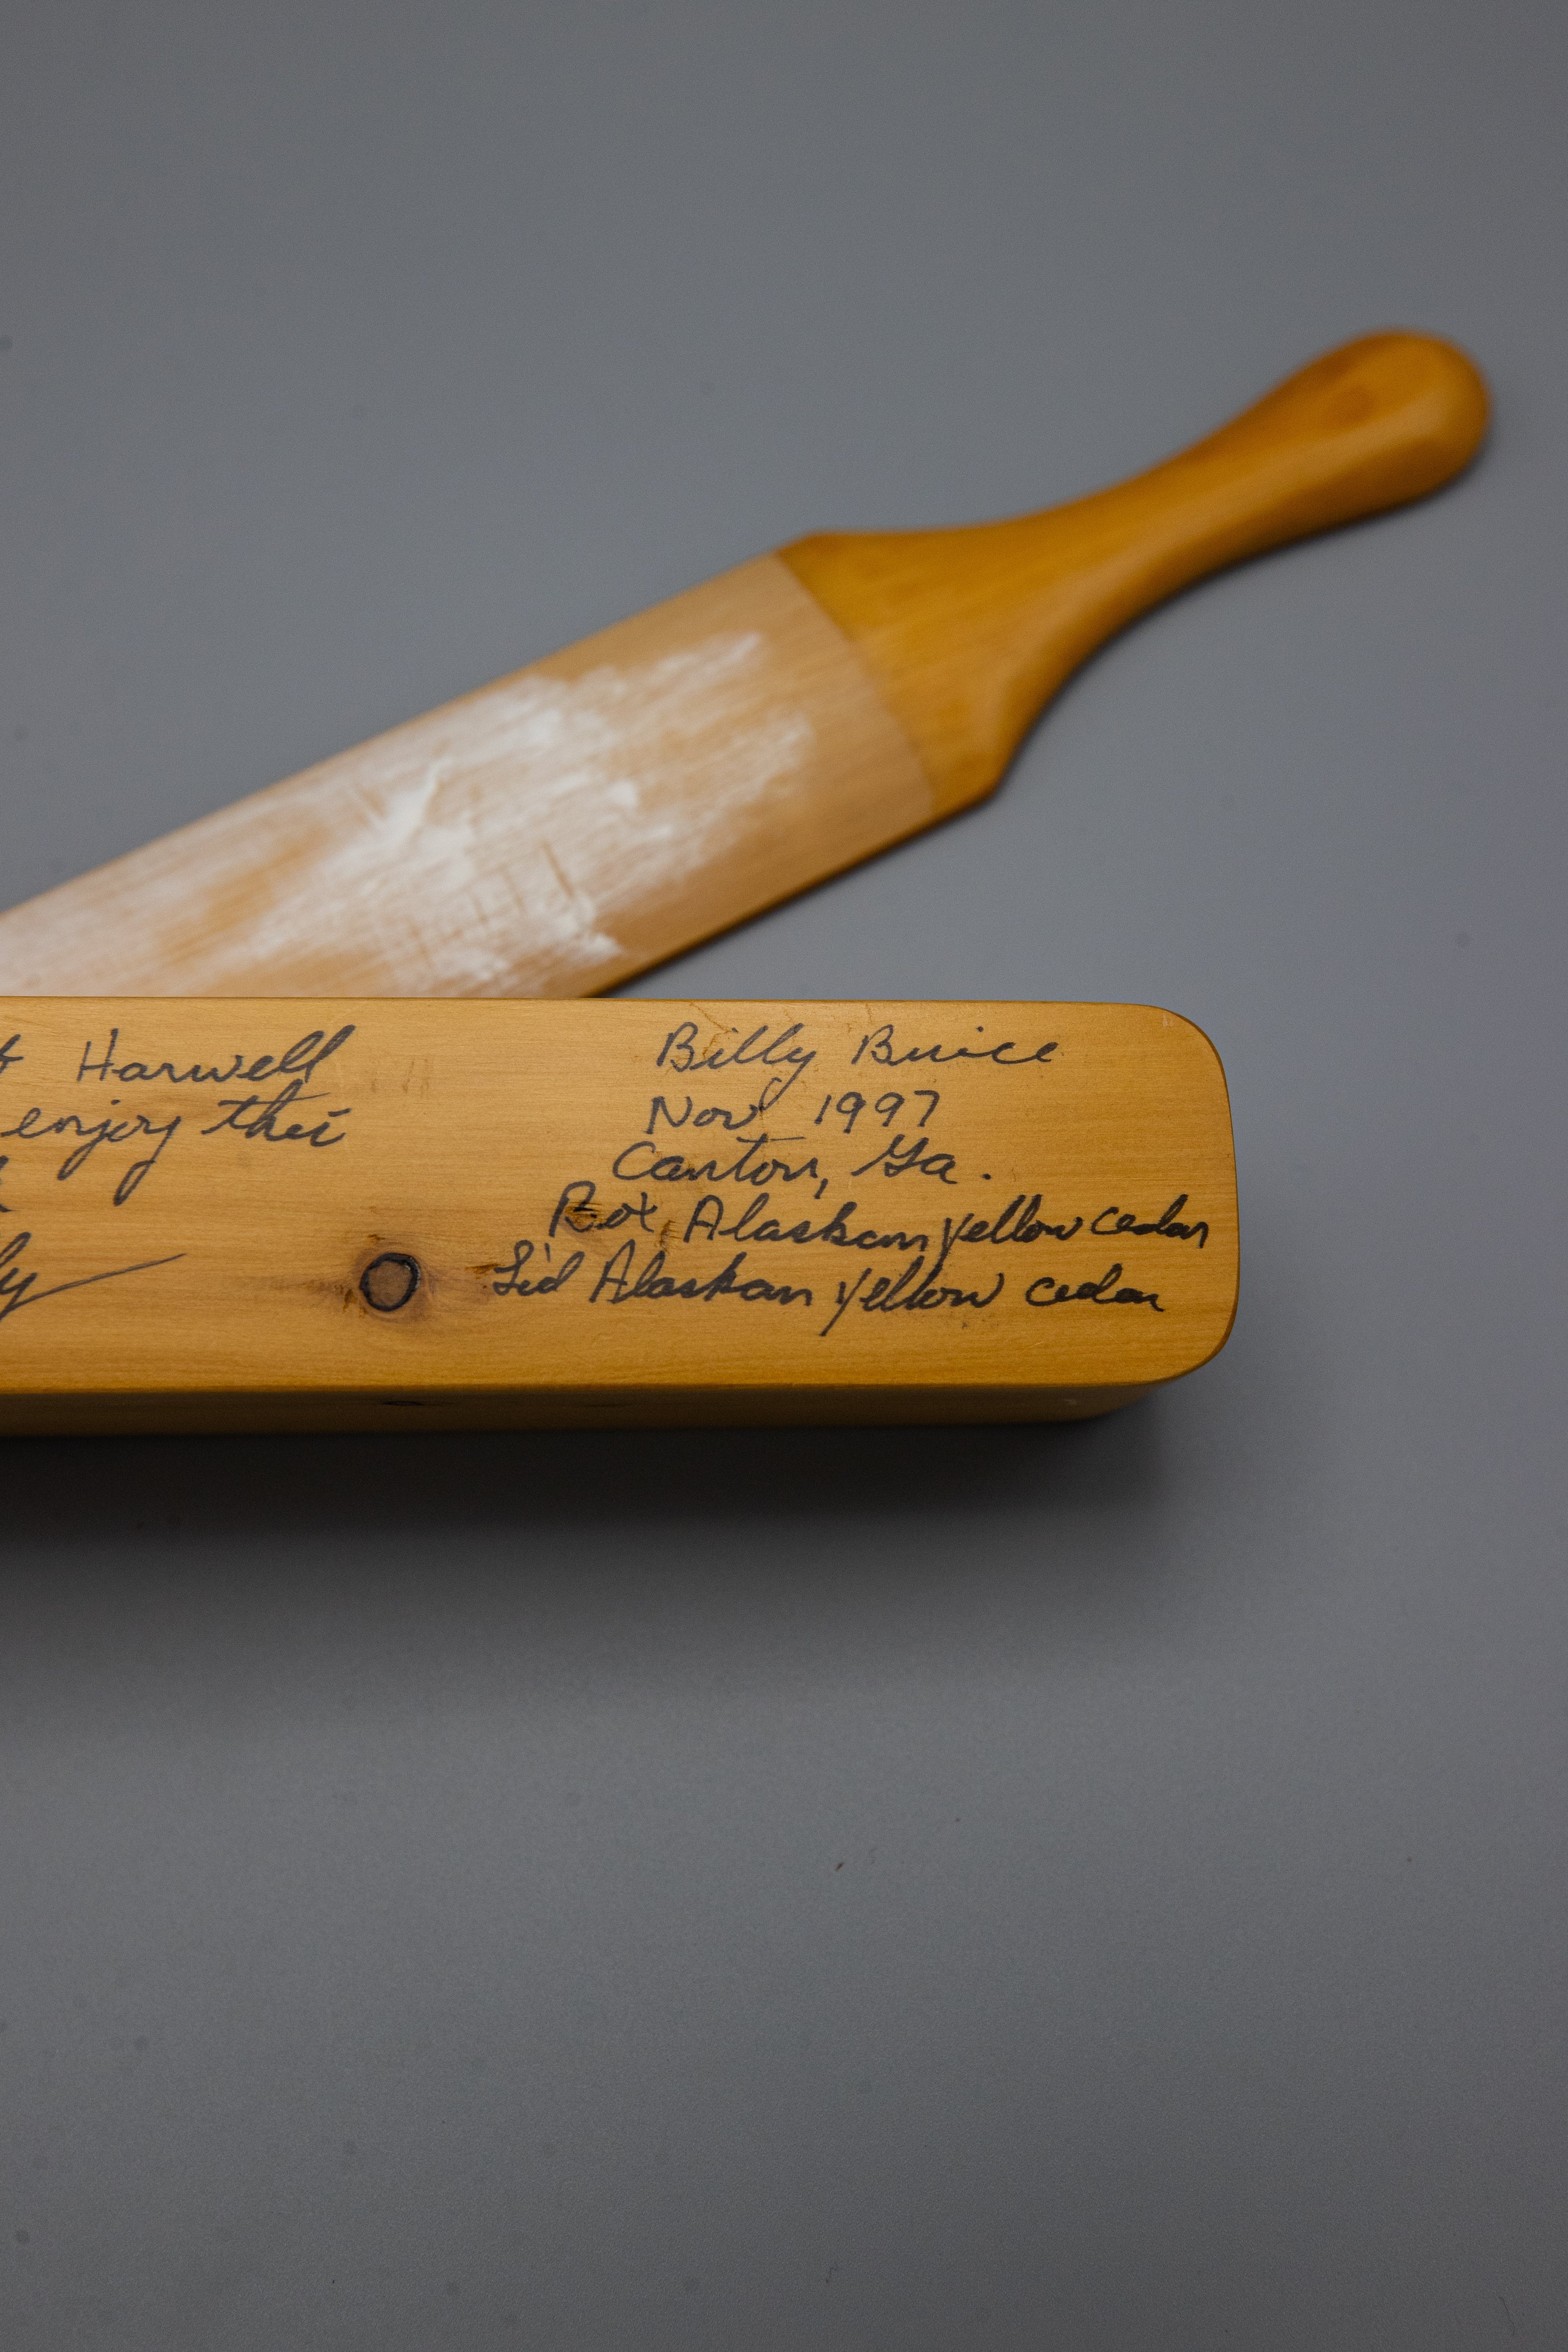 Harwell
enjoy this
Billy Buice
Nov 1997
Canton, Ga.
Box Alaskan yellow cedar
Lid Alaskan yellow cedar